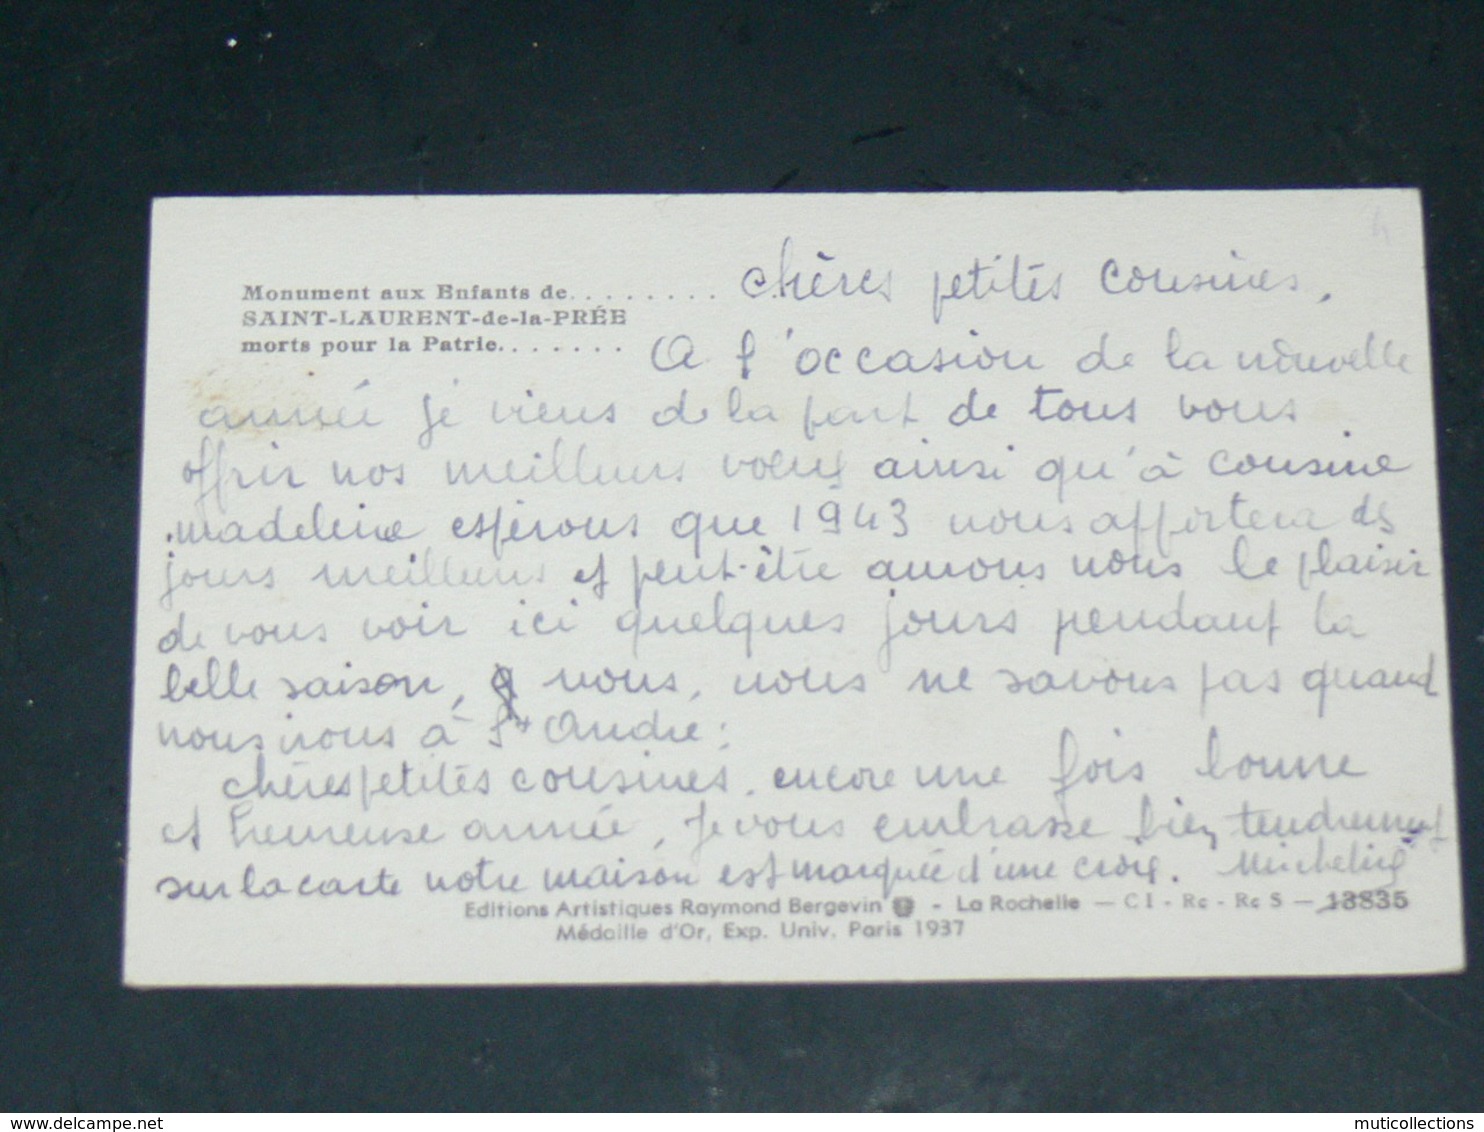 Monument aux Enfants de........ chères petites cousines,
SAINT-LAURENT-de-la-PRÉE
morts pour la Patrie....... A l'occasion de la nouvelle
année je viens de la part de tous vous
offrir nos meilleurs voeux ainsi qu'à cousine
madeleine espérons que 1943 nous apportera des
jours meilleurs et peut-être aurons nous le plaisir
de vous voir ici quelques jours pendant la
belle saison, nous, nous ne savons pas quand
nous irons à St André;
chères petites cousines, encore une fois bonne
et heureuse année, je vous embrasse bien tendrement
sur la carte notre maison est marquée d'une croix. Micheline
Editions Artistiques Raymond Bergevin - La Rochelle — C I - Rc - Rc S — 13835
Médaille d'Or, Exp. Univ. Paris 1937
delcampe.net
muticollections